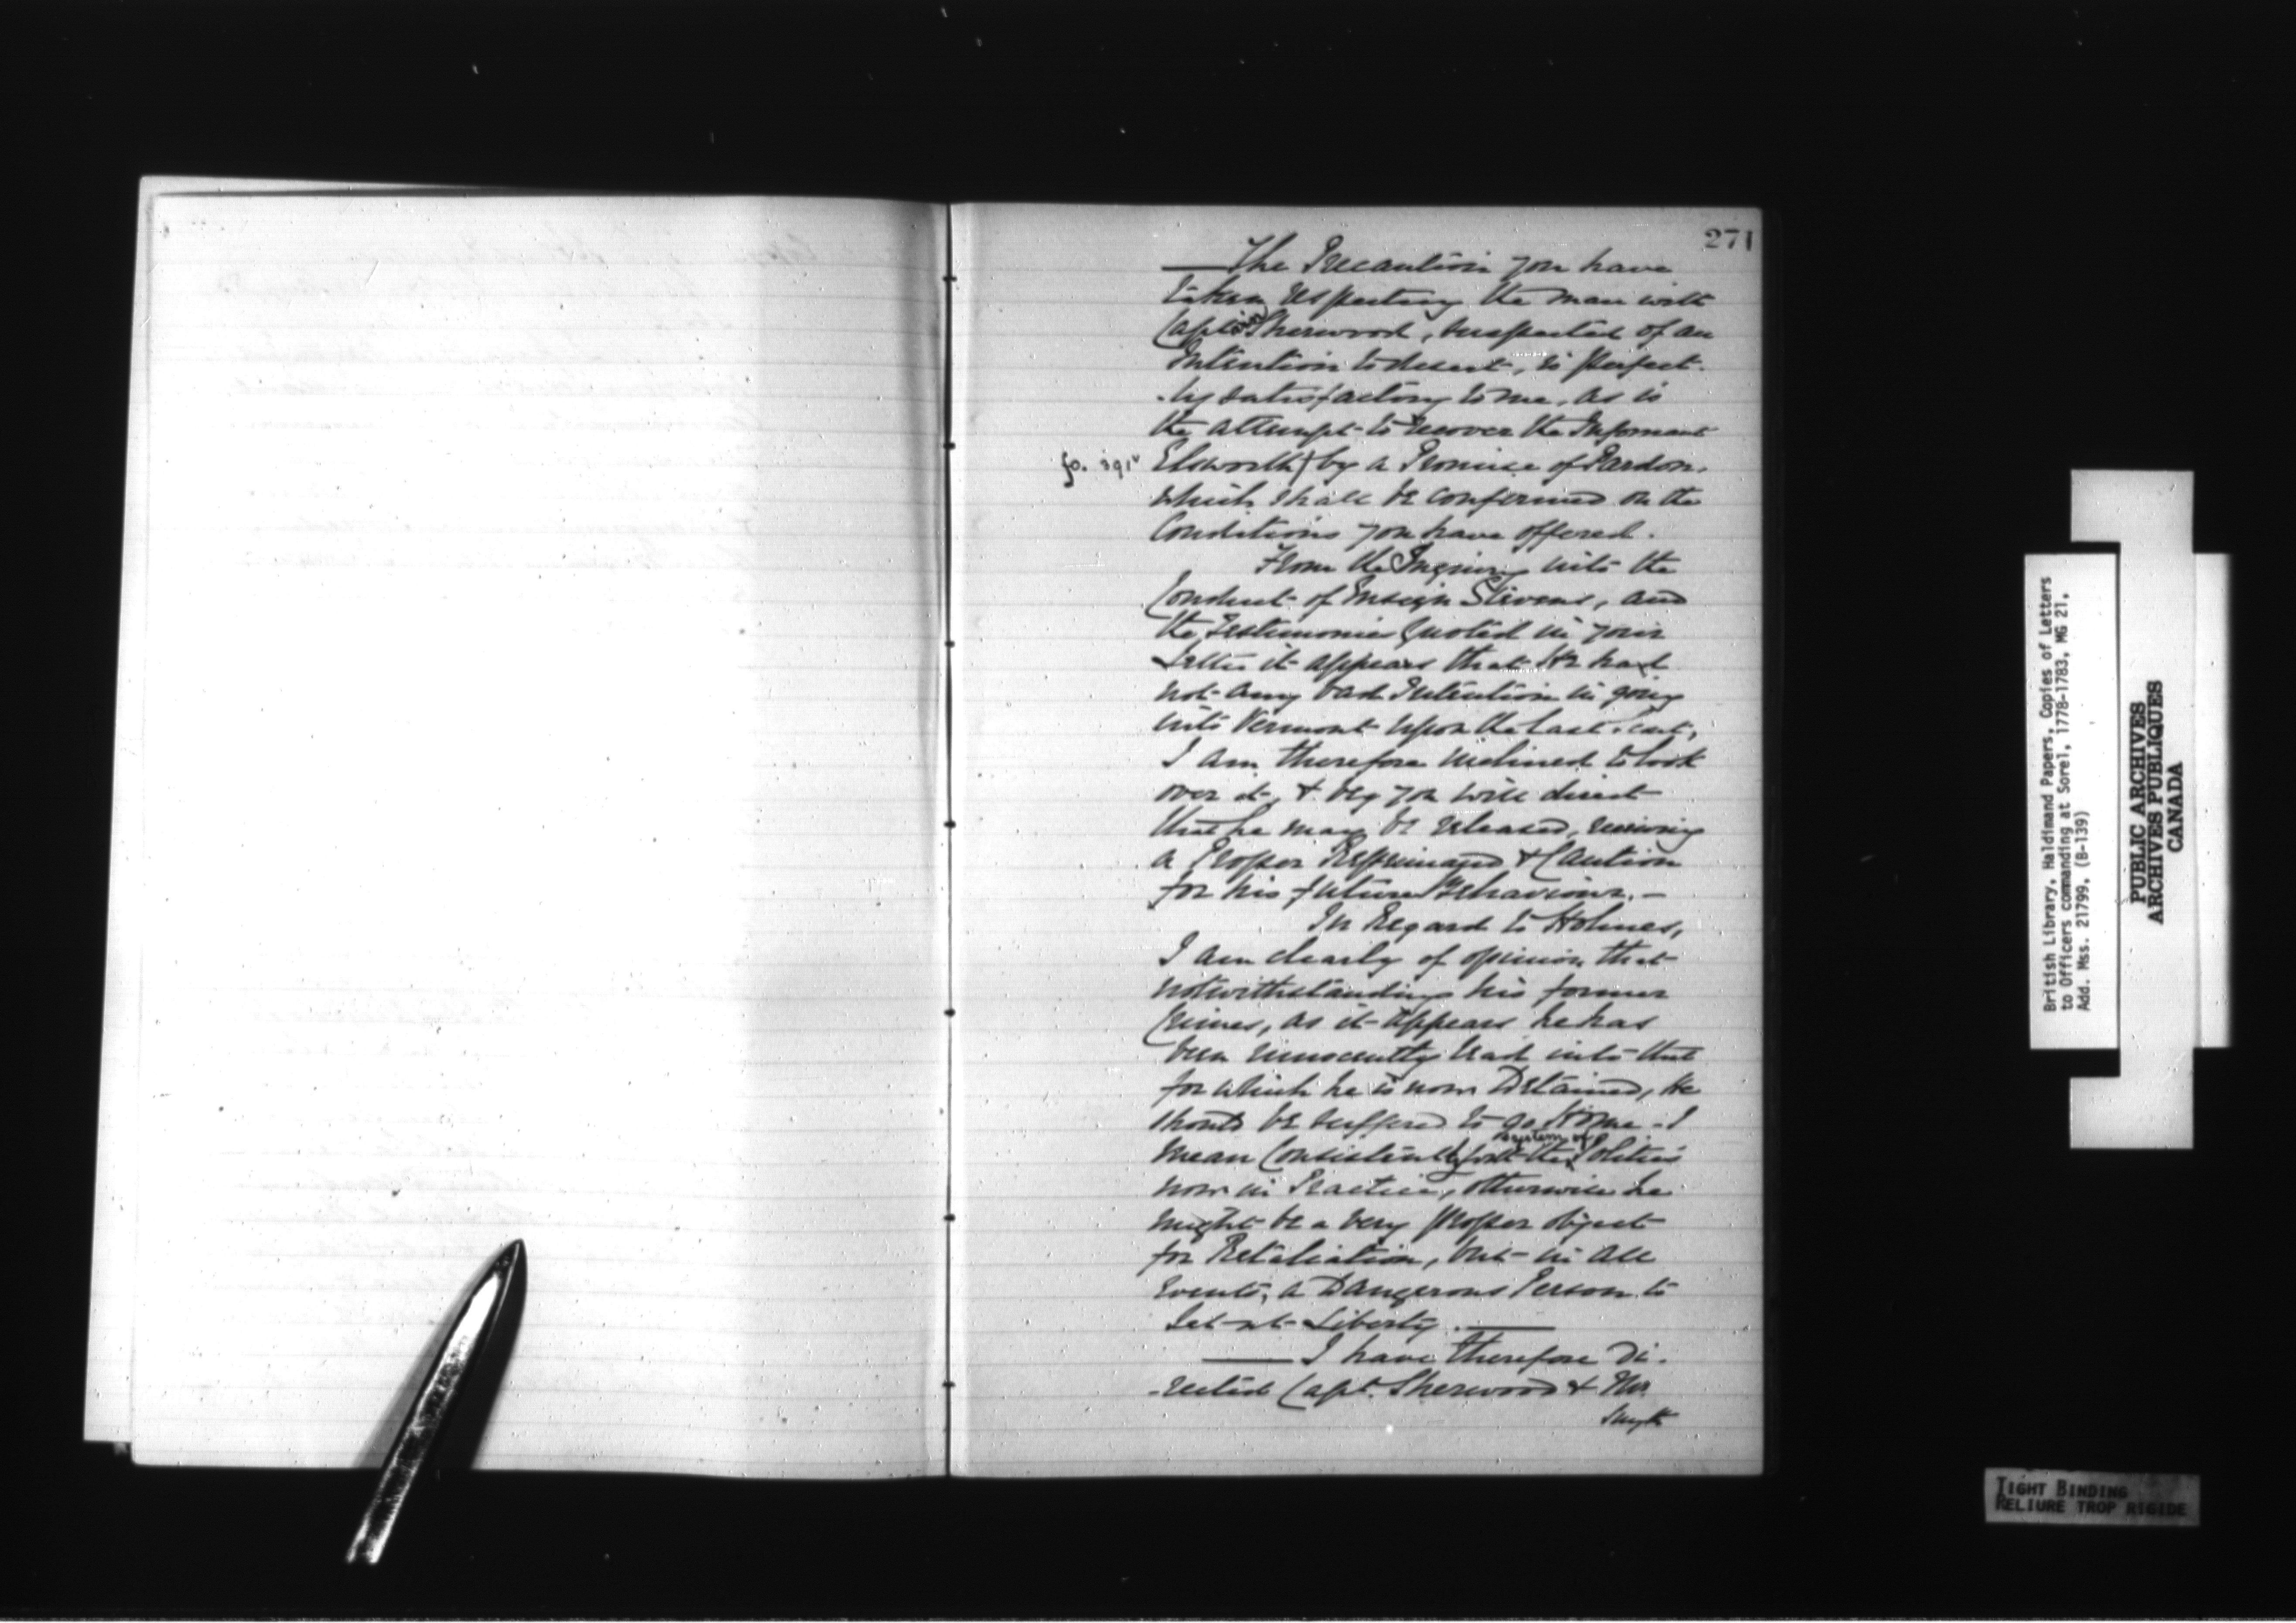 271
——The Precaution you have
taken respecting the man with
Captain Sherwood, suspected of an
Intention to desert, is perfect-
-ly satisfactory to me, as is
the attempt to recover the Informant
fo. 191v Elsworth by a Promise of Pardon,
which shall be confirmed on the
Conditions you have offered.
From the Inquiry into the
Conduct of Ensign Stevens, and
the Testimonies quoted in your
Letter it appears that He had
not any bad Intention in going
into Vermont upon the last Scout,
I am therefore inclined to look
over it, & beg you will direct
that he may be released, receiving
a Proper Reprimand & Caution
for his future Behaviour. —
In Regard to Holmes,
I am clearly of opinion that
notwithstanding his former
Crimes, as it appears he has
been innocently lead into that
for which he is now Detained, He
should be suffered to go Home - I
mean Consistently with the system of Politics
now in Practice, otherwise he
might be a very proper object
for Retaliation, but in all
Events, a Dangerous Person to
Set at Liberty. ——
—— I have therefore Di-
-rected Capt. Sherwood & Mr.
Smyth
British Library, Haldimand Papers, Copies of Letters
to Officers commanding at Sorel, 1778-1783, MG 21,
Add. Mss. 21799, (B-139)
PUBLIC ARCHIVES
ARCHIVES PUBLIQUES
CANADA
TIGHT BINDING
RELIURE TROP RIGIDE